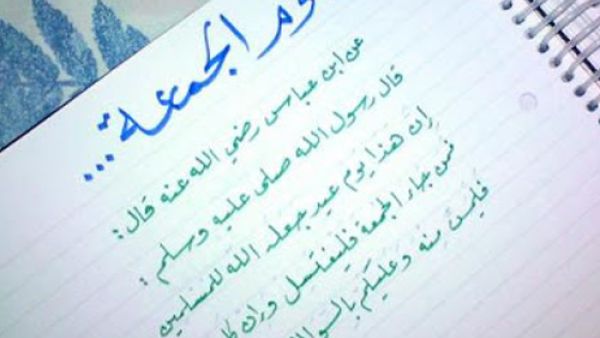 وم الجمعة...
عن ابن عباس رضي الله عنه قال:
قال رسول الله صلى عليه وسلم:
إن هذا يوم عيد جعله الله للمسلمين
فمن جاء الجمعة فليغتسل وإن
فليمس منه وعليكم بالسوا